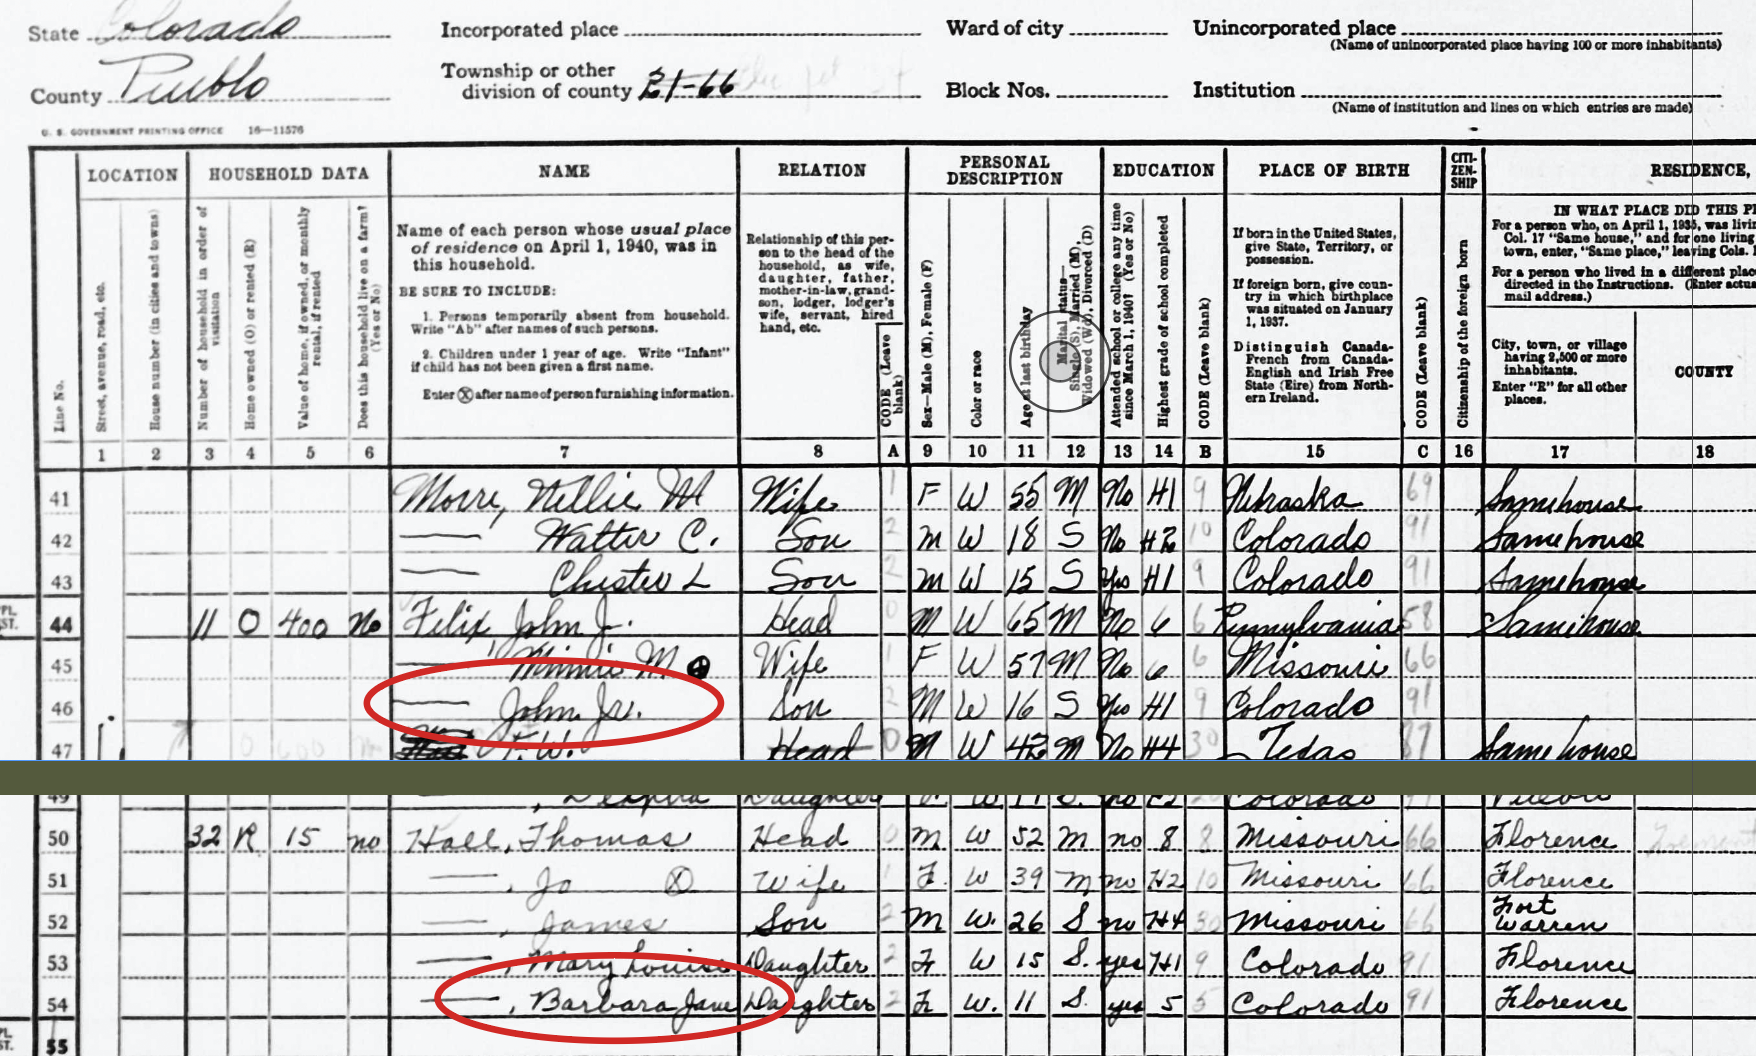 State Colorado Incorporated place Ward of city Unincorporated place
(Name of unincorporated place having 100 or more inhabitants)
County Pueblo Township or other division of county 21-66 Block Nos. Institution
(Name of institution and lines on which entries are made)
U. S. GOVERNMENT PRINTING OFFICE 16—11576
LOCATION HOUSEHOLD DATA NAME RELATION PERSONAL DESCRIPTION EDUCATION PLACE OF BIRTH CITI-ZEN-SHIP RESIDENCE,
Line No.
Street, avenue, road, etc.
House number (in cities and towns)
Number of household in order of visitation
Home owned (O) or rented (R)
Value of home, if owned, or monthly rental, if rented
Does this household live on a farm? (Yes or No)
Name of each person whose usual place
of residence on April 1, 1940, was in
this household.
BE SURE TO INCLUDE:
1. Persons temporarily absent from household.
Write "Ab" after names of such persons.
2. Children under 1 year of age. Write "Infant"
if child has not been given a first name.
Enter ⓧ after name of person furnishing information.
Relationship of this per-
son to the head of the
household, as wife,
daughter, father,
mother-in-law, grand-
son, lodger, lodger's
wife, servant, hired
hand, etc.
CODE (Leave blank)
Sex—Male (M), Female (F)
Color or race
Age at last birthday
Marital status—
Single (S), Married (M),
Widowed (Wd), Divorced (D)
Attended school or college any time
since March 1, 1940? (Yes or No)
Highest grade of school completed
CODE (Leave blank)
If born in the United States,
give State, Territory, or
possession.
If foreign born, give coun-
try in which birthplace
was situated on January
1, 1937.
Distinguish Canada-
French from Canada-
English and Irish Free
State (Eire) from North-
ern Ireland.
CODE (Leave blank)
Citizenship of the foreign born
IN WHAT PLACE DID THIS P
For a person who, on April 1, 1935, was livin
Col. 17 "Same house," and for one living
town, enter, "Same place," leaving Cols. 1
For a person who lived in a different place
directed in the Instructions. (Enter actua
mail address.)
City, town, or village
having 2,500 or more
inhabitants.
Enter "R" for all other
places.
COUNTY
1 2 3 4 5 6 7 8 A 9 10 11 12 13 14 B 15 C 16 17 18
41 Moore, Nellie M Wife 1 F W 55 M No H1 9 Nebraska 69 Same house
42 — Walter C. Son 2 M W 18 S No H2 10 Colorado 91 Same house
43 — Chester L Son 2 M W 15 S Yes H1 9 Colorado 91 Same house
PL.
ST.
44 11 O 400 No Felix John J. Head 0 M W 65 M No 6 6 Pennsylvania 58 Same house
45 — Minnie M Wife 1 F W 57 M No 6 6 Missouri 66
46 — John Jr. Son 2 M W 16 S Yes H1 9 Colorado 91
47 W. Head 0 M W 42 M No H4 30 Texas 87 Same house
49 Daughter Colorado
50 32 R 15 no Hall, Thomas Head 0 M W 52 M no 8 8 Missouri 66 Florence
51 —, Jo ⓧ Wife 1 F. W 39 M no H2 10 Missouri 66 Florence
52 —, James Son 2 M W. 26 S no H4 30 Missouri 66 Fort Warren
53 —, Mary Louise Daughter 2 F W 15 S. yes H1 9 Colorado 91 Florence
54 —, Barbara Jane Daughter 2 F W. 11 S. yes 5 5 Colorado 91 Florence
PL.
ST.
55